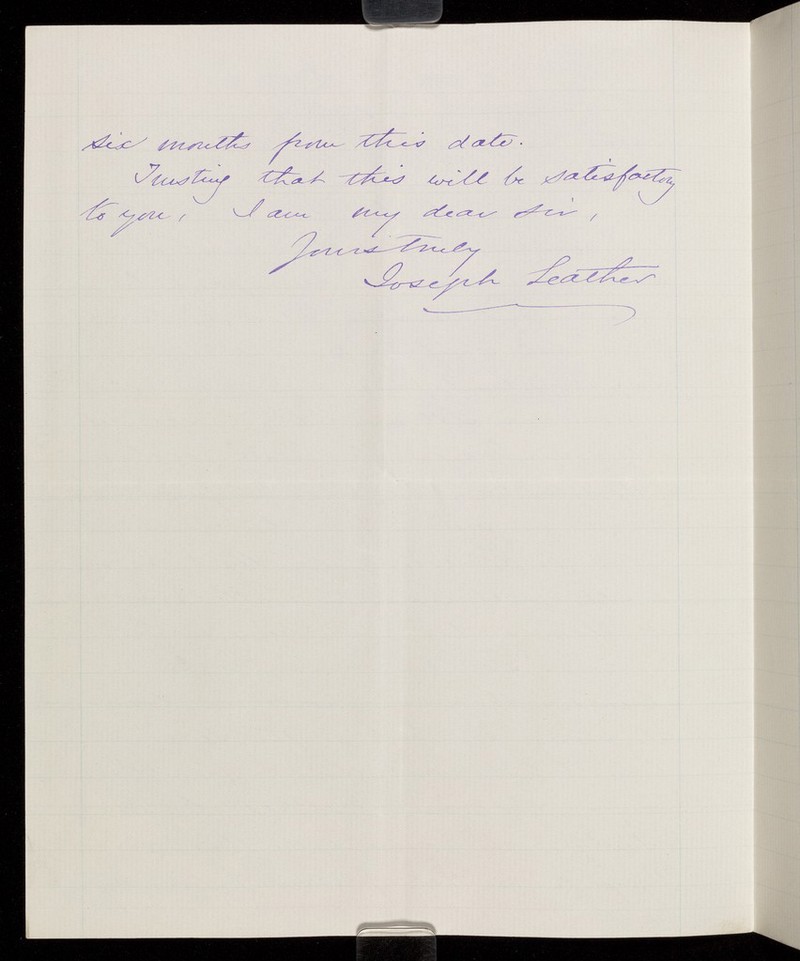 six months from this date.
Trusting that this will be satisfactory
to you, I am my dear sir,
Yours truly
Joseph Leather